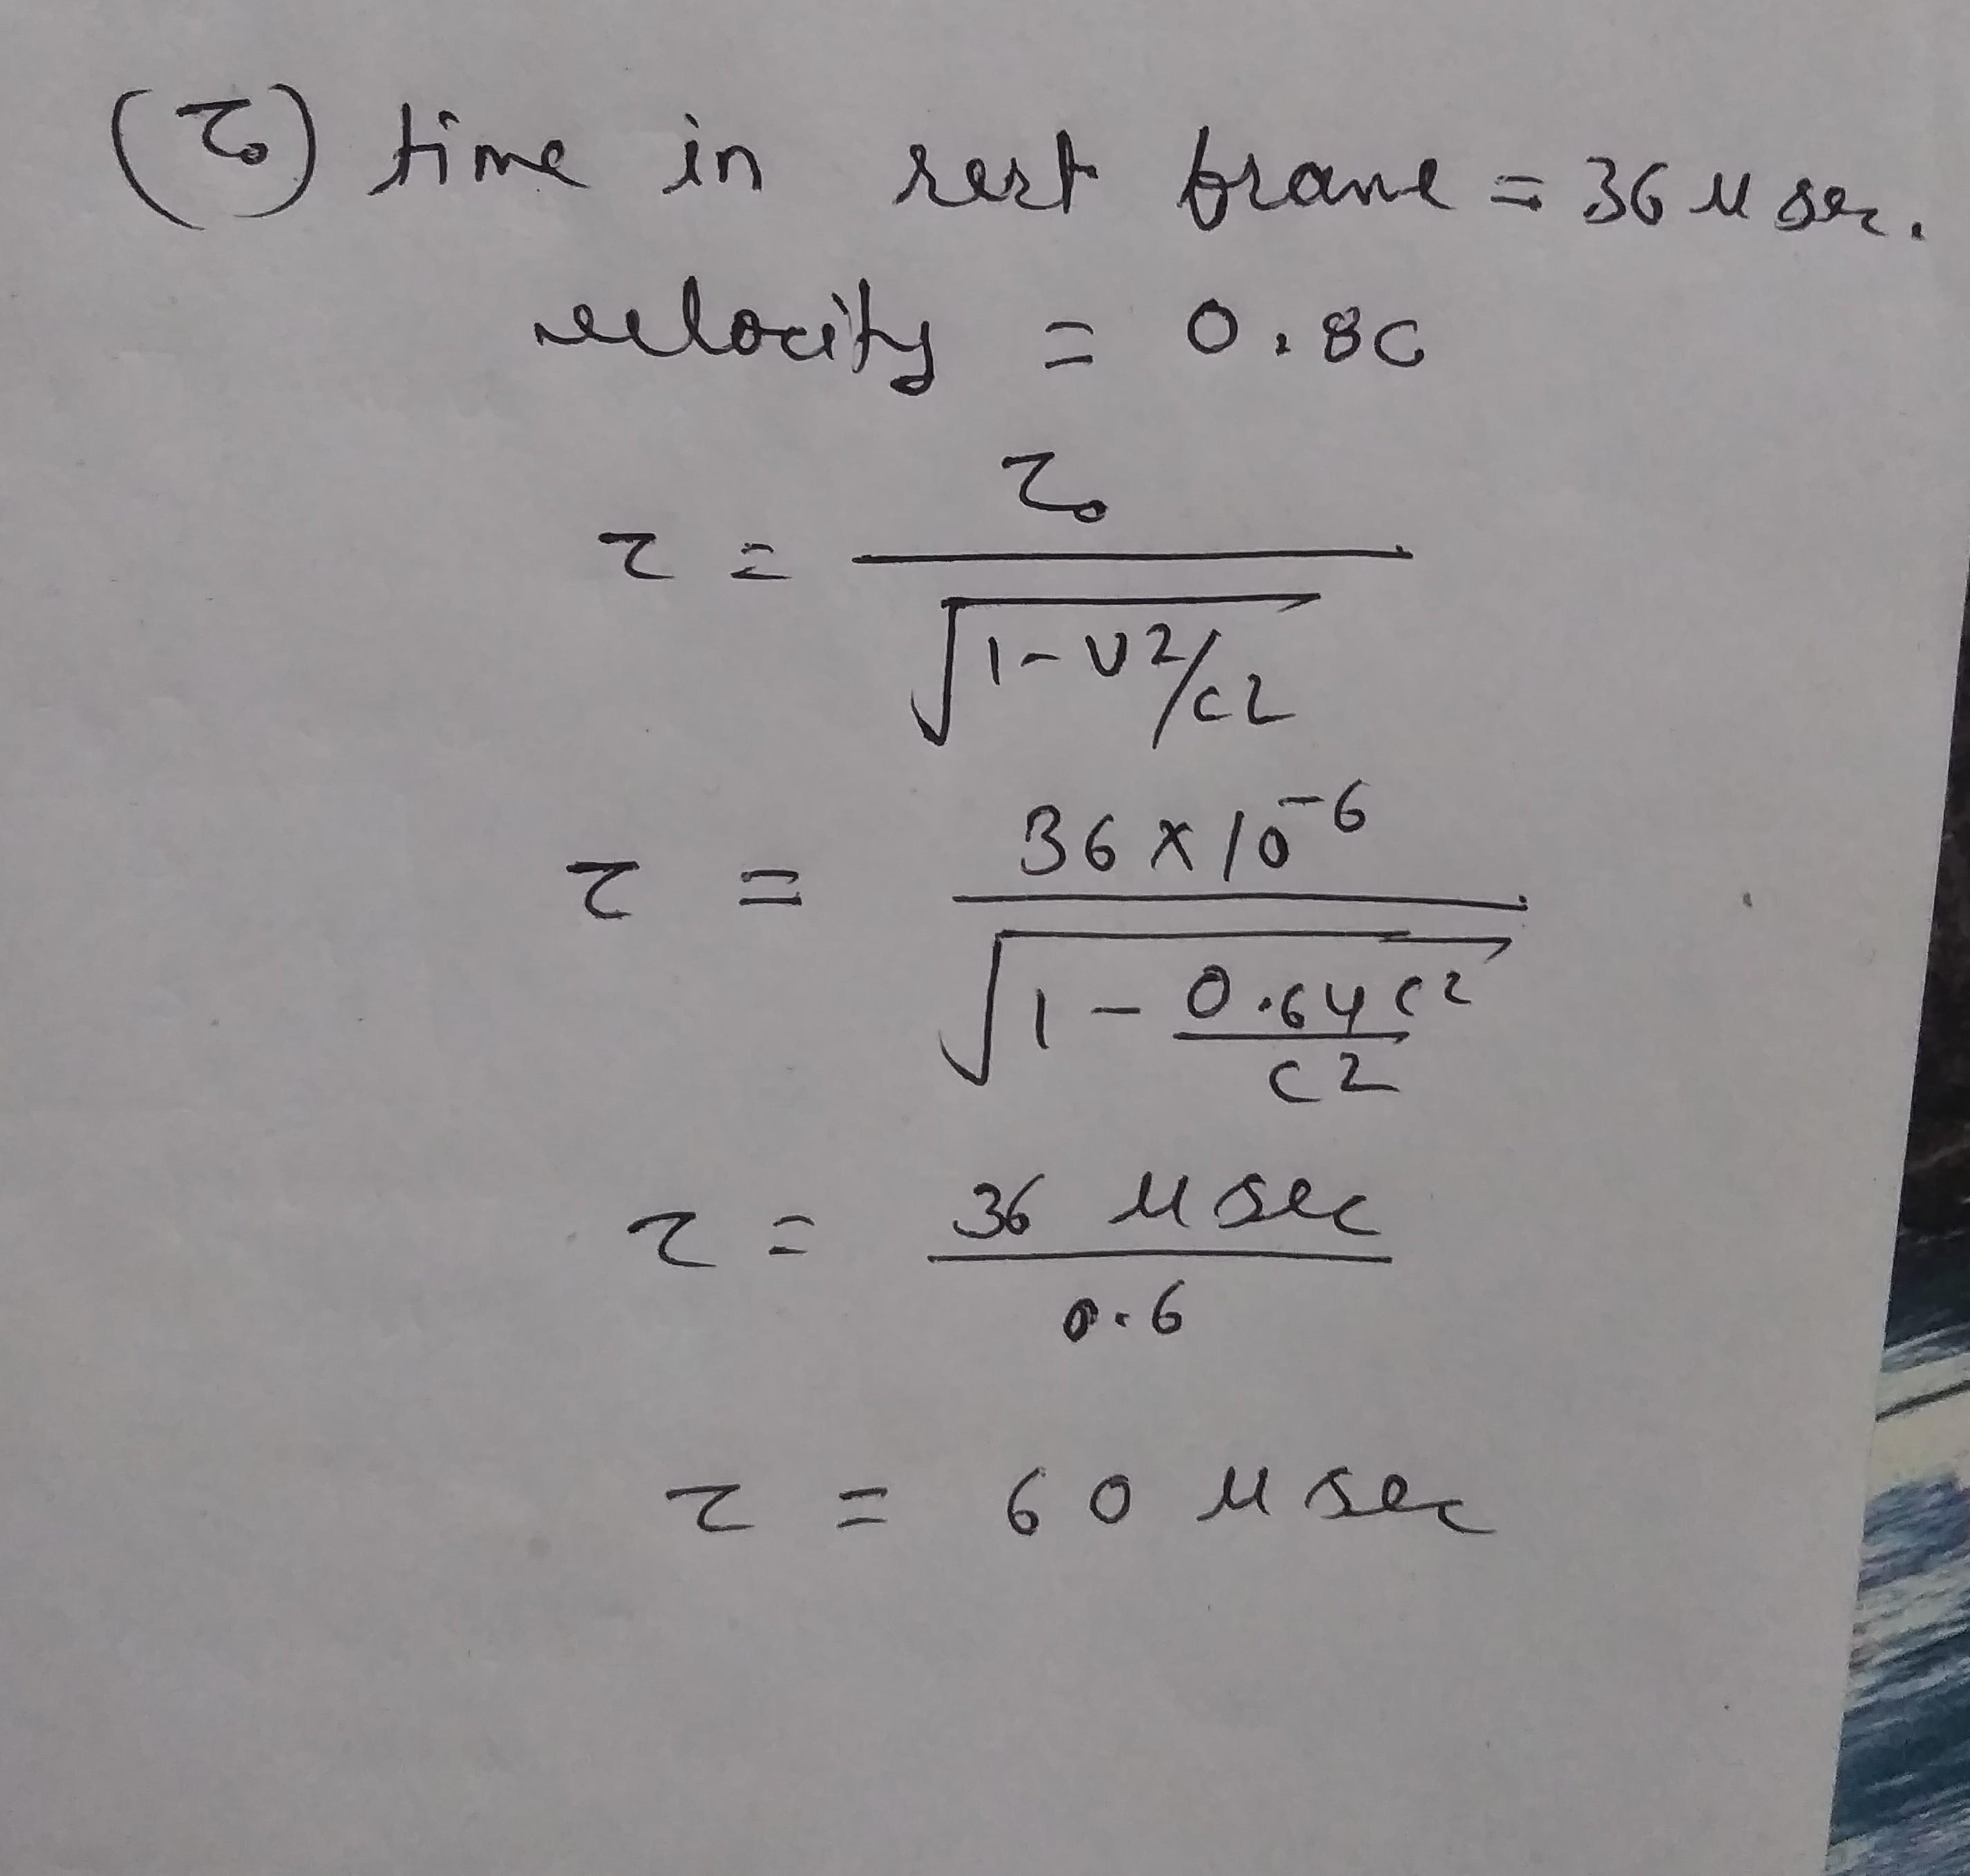 (τ₀) time in rest frame = 36 μ sec.
velocity = 0.8c
τ = τ₀ / √(1 - v²/c²)
τ = 36 × 10⁻⁶ / √(1 - 0.64c²/c²)
τ = 36 μ sec / 0.6
τ = 60 μ sec